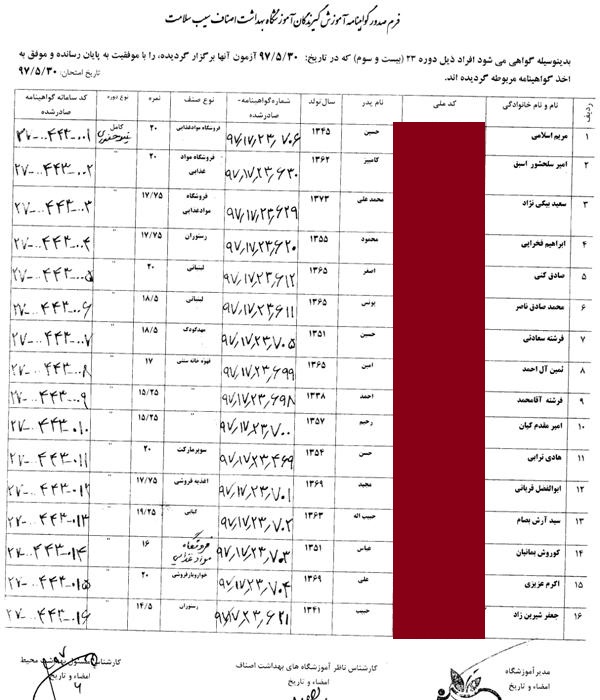 فرم صدور گواهینامه آموزش گیرندگان آموزشگاه بهداشت اصناف سیب سلامت
بدینوسیله گواهی می شود افراد ذیل دوره ۲۳ (بیست و سوم) که در تاریخ: ۹۷/۵/۳۰ آزمون آنها برگزار گردیده، را با موفقیت به پایان رسانده و موفق به
اخذ گواهینامه مربوطه گردیده اند. تاریخ امتحان: ۹۷/۵/۳۰
ردیف نام و نام خانوادگی کد ملی نام پدر سال تولد شماره گواهینامه صادرشده نوع صنف نمره نوع دوره کد سامانه گواهینامه صادرشده
۱ مریم اسلامی حسین ۱۳۴۵ ۹۷/۱۷/۲۳/۷۰۶ فروشگاه موادغذایی ۲۰ کامل ۲۷-...۴۴۳-۰۰۱
۲ امیر سلحشور اسبق کامبیز ۱۳۶۲ ۹۷/۱۷/۲۳/۶۳۰ فروشگاه مواد غذایی ۲۰ " ۲۷-...۴۴۳-۰۰۲
۳ سعید بیگی نژاد محمدعلی ۱۳۷۳ ۹۷/۱۷/۲۳/۶۲۹ فروشگاه موادغذایی ۱۷/۷۵ " ۲۷-...۴۴۳-۰۰۳
۴ ابراهیم فخرایی محمود ۱۳۵۵ ۹۷/۱۷/۲۳/۶۲۰ رستوران ۱۷/۷۵ " ۲۷-...۴۴۳-۰۰۴
۵ صادق کنی اصغر ۱۳۶۵ ۹۷/۱۷/۲۳/۶۱۲ لبنیاتی ۲۰ " ۲۷-...۴۴۳-۰۰۵
۶ محمد صادق ناصر یونس ۱۳۶۵ ۹۷/۱۷/۲۳/۶۱۱ لبنیاتی ۱۸/۵ " ۲۷-...۴۴۳-۰۰۶
۷ فرشته سعادتی حسین ۱۳۵۱ ۹۷/۱۷/۲۳/۷۰۵ مهدکودک ۱۸/۵ " ۲۷-...۴۴۳-۰۰۷
۸ ثمین آل احمد امین ۱۳۶۵ ۹۷/۱۷/۲۳/۶۹۹ قهوه خانه سنتی ۱۷ " ۲۷-...۴۴۳-۰۰۸
۹ فرشته آقامحمد احمد ۱۳۳۸ ۹۷/۱۷/۲۳/۶۹۸ " ۱۵/۲۵ " ۲۷-...۴۴۳-۰۰۹
۱۰ امیر مقدم کیان رحیم ۱۳۵۷ ۹۷/۱۷/۲۳/۷۰۰ " ۱۵/۲۵ " ۲۷-...۴۴۳-۰۱۰
۱۱ هادی ترابی حسن ۱۳۵۴ ۹۷/۱۷/۲۳/۴۶۹ سوپرمارکت ۲۰ " ۲۷-...۴۴۳-۰۱۱
۱۲ ابوالفضل قربانی مجید ۱۳۶۹ ۹۷/۱۷/۲۳/۷۰۱ اغذیه فروشی ۱۷/۷۵ " ۲۷-...۴۴۳-۰۱۲
۱۳ سید آرش بصام حبیب اله ۱۳۶۳ ۹۷/۱۷/۲۳/۷۰۲ کبابی ۱۹/۲۵ " ۲۷-...۴۴۳-۰۱۳
۱۴ کوروش بمانیان عباس ۱۳۵۱ ۹۷/۱۷/۲۳/۷۰۳ فروشگاه مواد غذایی ۱۶ " ۲۷-...۴۴۳-۰۱۴
۱۵ اکرم عزیزی علی ۱۳۶۹ ۹۷/۱۷/۲۳/۷۰۴ خواروبارفروشی ۲۰ " ۲۷-...۴۴۳-۰۱۵
۱۶ جعفر شیرین زاد حبیب ۱۳۴۱ ۹۷/۱۷/۲۳/۶۲۱ رستوران ۱۴/۵ " ۲۷-...۴۴۳-۰۱۶
مدیر آموزشگاه کارشناس ناظر آموزشگاه های بهداشت اصناف کارشناس مسئول بهداشت محیط
امضاء و تاریخ امضاء و تاریخ امضاء و تاریخ